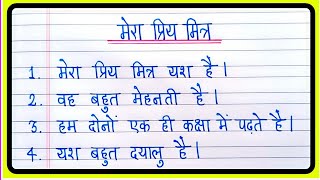 मेरा प्रिय मित्र
1. मेरा प्रिय मित्र यश है।
2. वह बहुत मेहनती है।
3. हम दोनों एक ही कक्षा में पढ़ते हैं।
4. यश बहुत दयालु है।